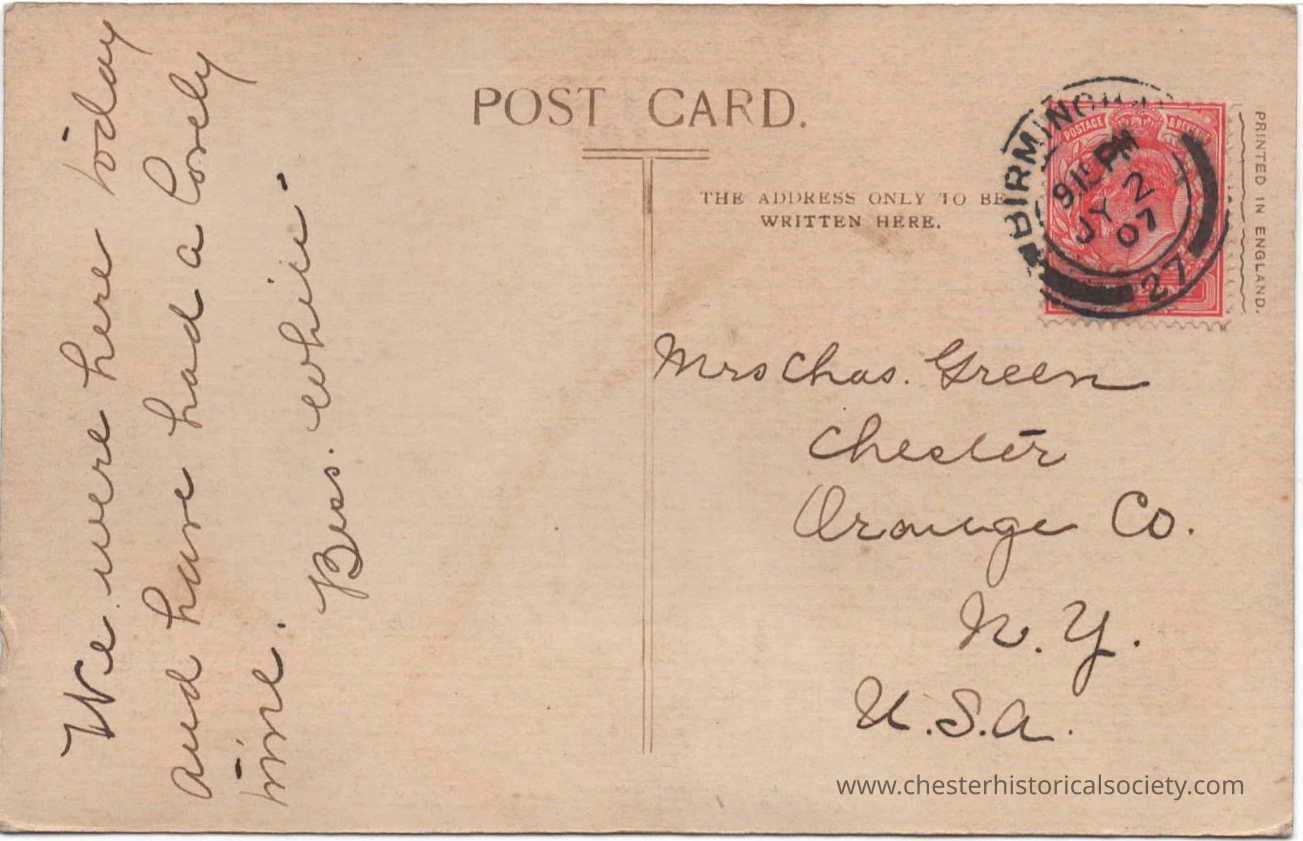 POST CARD.
THE ADDRESS ONLY TO BE
WRITTEN HERE.
PRINTED IN ENGLAND.
BIRMINGHAM
9 15 PM
JY 2
07
27
POSTAGE
We were here today
and have had a lovely
time.
Bess. White
Mrs Chas. Green
Chester
Orange Co.
N.Y.
U.S.A.
www.chesterhistoricalsociety.com